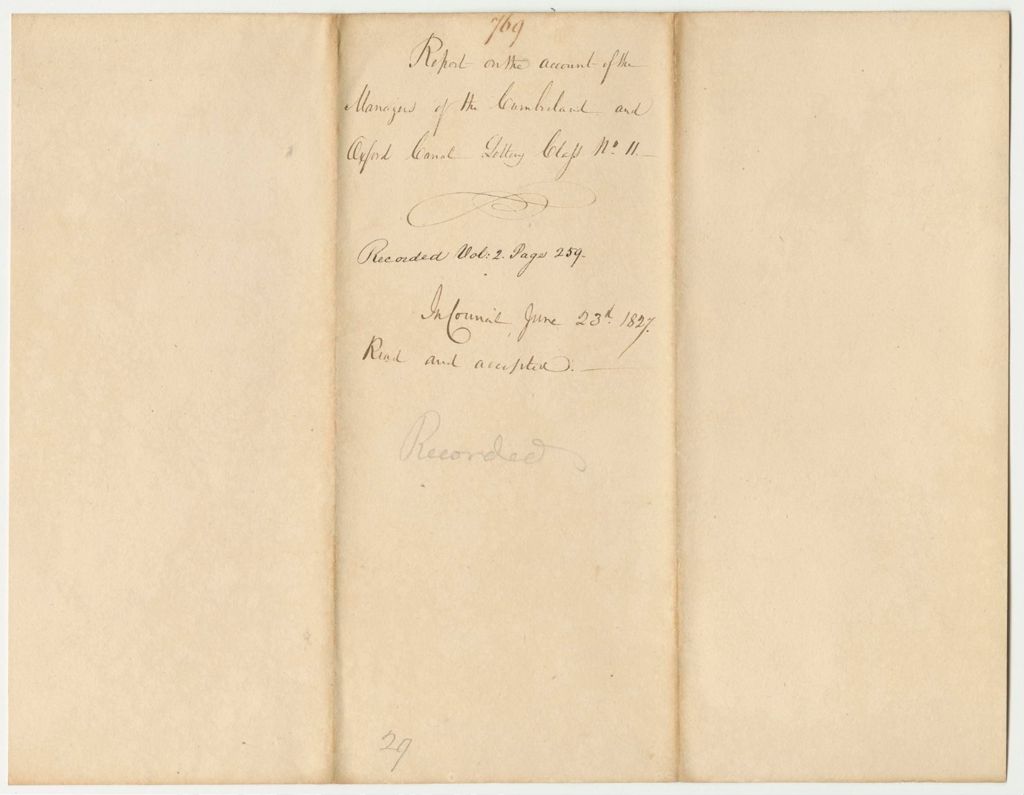 769
Report on the account of the
Managers of the Cumberland and
Oxford Canal Lottery Class No 11.—
Recorded Vol: 2. Page 259.
In Council, June 23d. 1827.
Read and accepted.—
Recorded
29